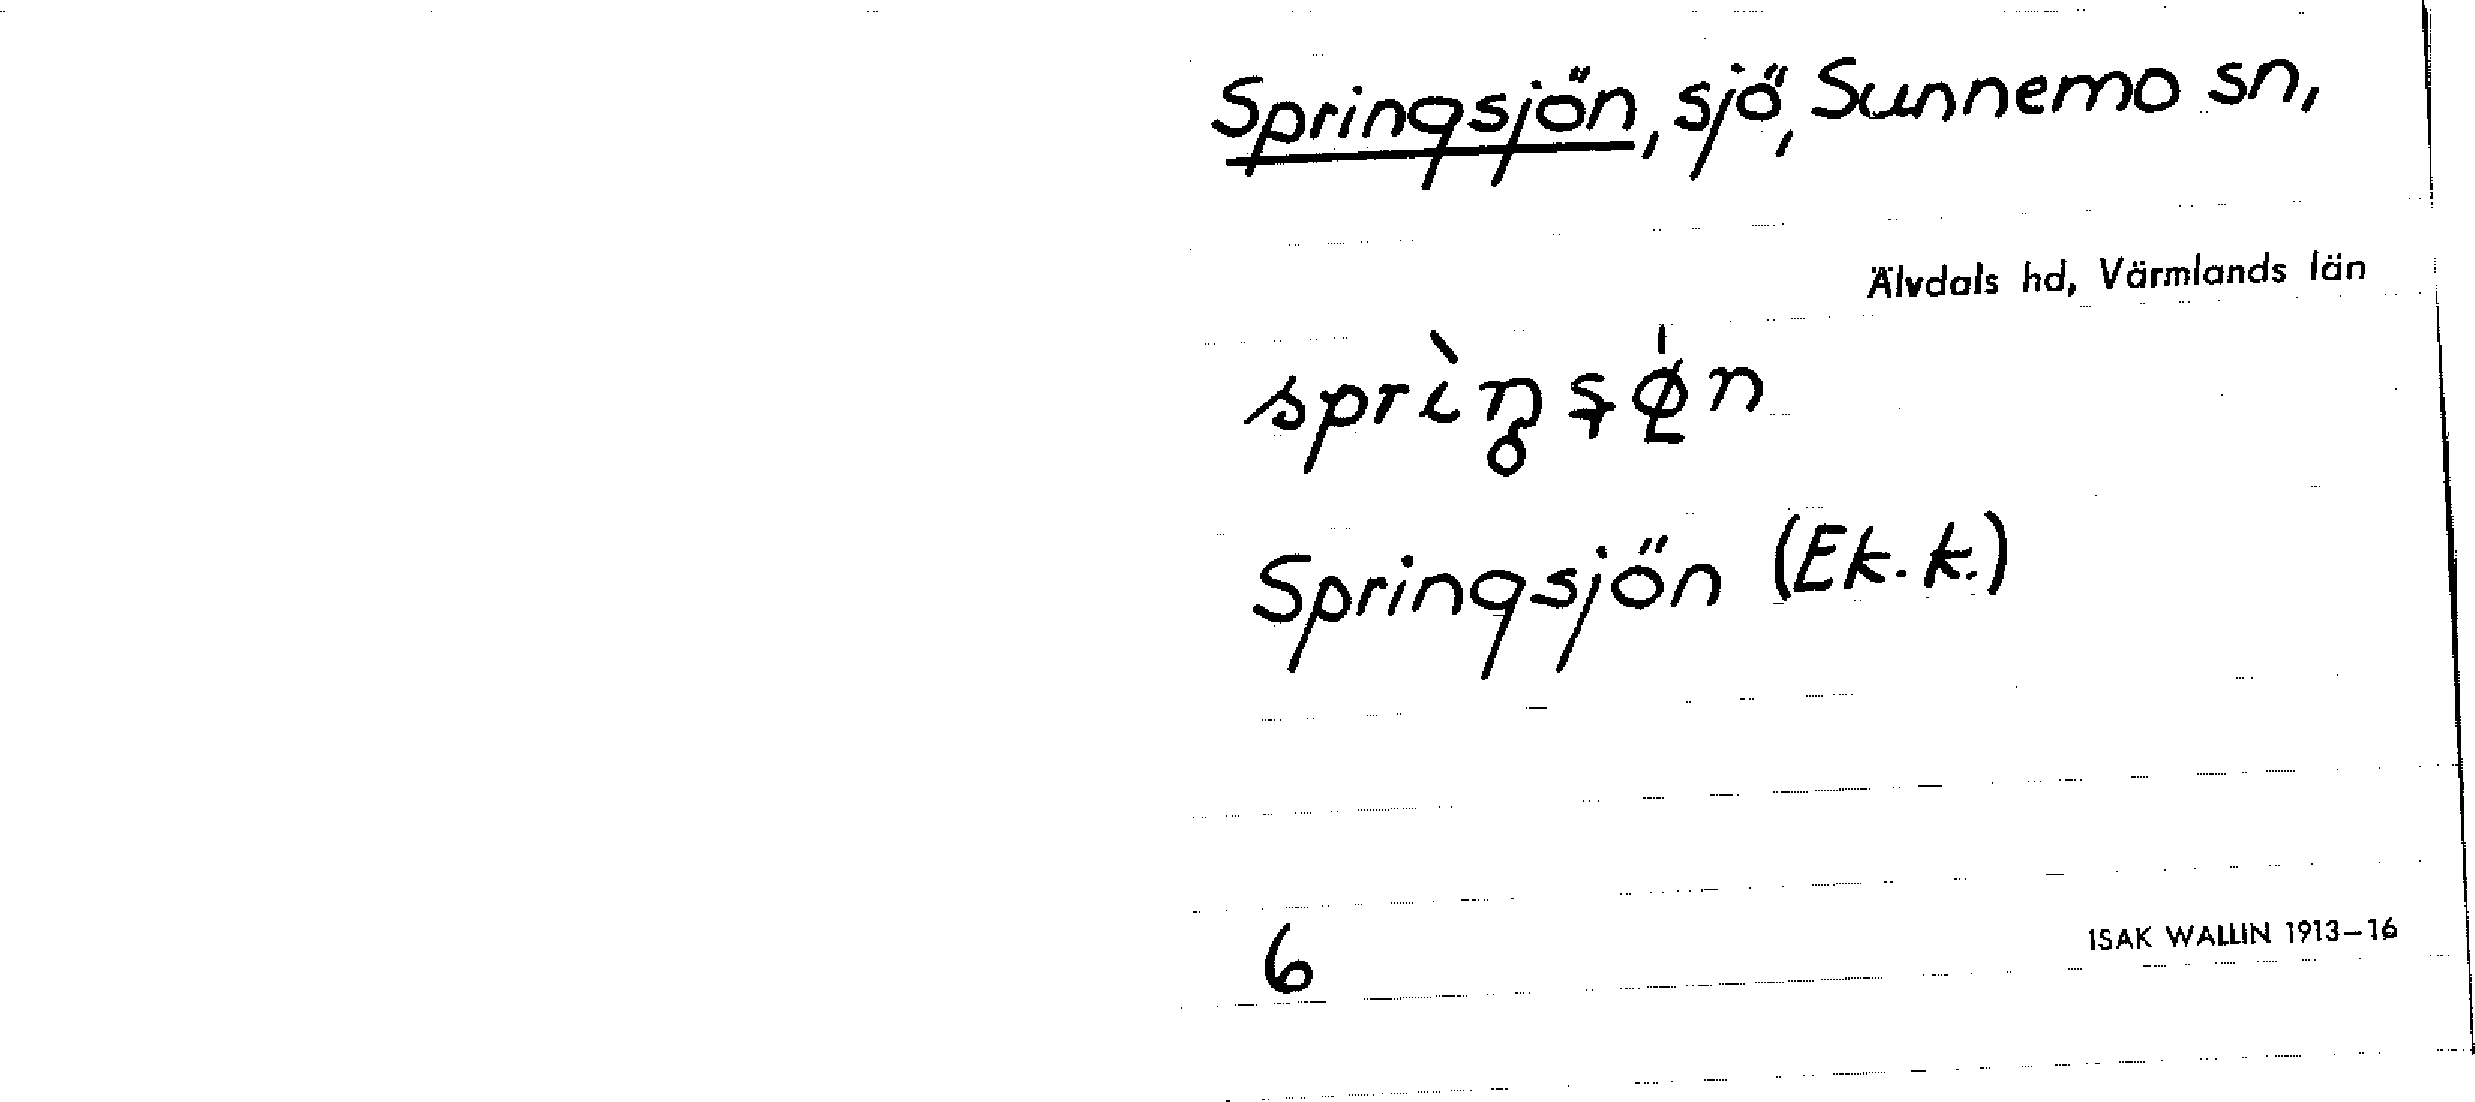 Springsjön, sjö, Sunnemo sn,
Älvdals hd, Värmlands län
Springsjön (Ek. k.)
6
ISAK WALLIN 1913–16